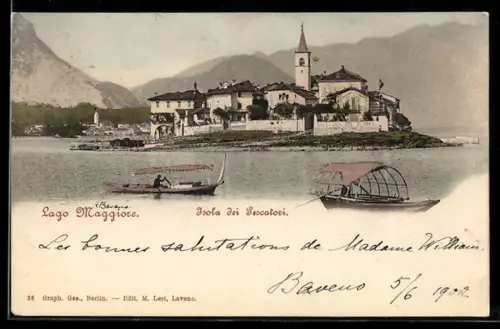 Baveno.
Lago Maggiore. Isola dei Pescatori.
Les bonnes salutations de Madame William.
Baveno 5/6 1902
26 Graph. Ges., Berlin. — Edit, M. Lert, Laveno.